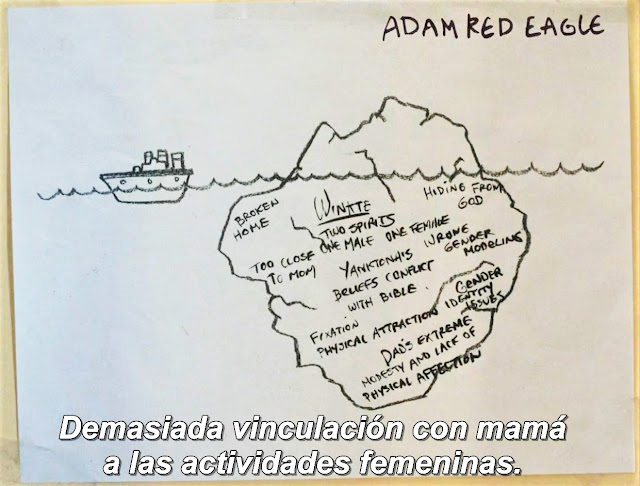 ADAM RED EAGLE
BROKEN
HOME
WINKTE
TWO SPIRITS
ONE MALE ONE FEMALE
HIDING FROM
GOD
TOO CLOSE
TO MOM
YANKTONAI'S
BELIEFS CONFLICT
WITH BIBLE.
WRONG
GENDER
MODELING
FIXATION
PHYSICAL ATTRACTION
GENDER
IDENTITY
ISSUES
DAD'S EXTREME
MODESTY AND LACK OF
PHYSICAL AFFECTION
Demasiada vinculación con mamá
a las actividades femeninas.